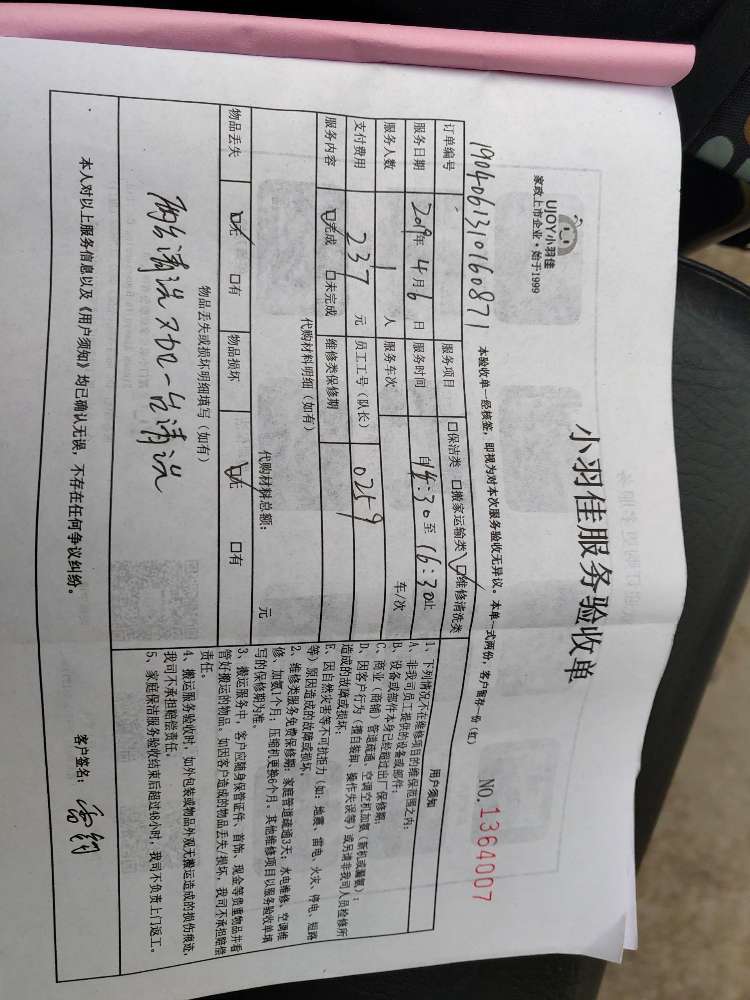 UJOY小羽佳
家政上市企业·始于1999
小羽佳服务验收单
NO.1364007
本验收单一经核签，即视为对本次服务验收无异议。本单一式两份，客户留存一份（红）
订单编号 1904061310160871 服务项目 □保洁类 □搬家运输类 ☑维修清洗类
服务日期 2019年 4月 6日 服务时间 自14:30至16:30止
服务人数 1 人 服务车次 车/次
支付费用 237 元 员工工号（队长） 0259
服务内容 ☑完成 □未完成 维修类保修期
代购材料明细（如有）
代购材料总额： 元
物品丢失 ☑无 □有 物品损坏 ☑无 □有
物品丢失或损坏明细填写（如有）
两台清洗 一台清洗
本人对以上服务信息以及《用户须知》均已确认无误，不存在任何争议纠纷。
用户须知
1、下列情况不在维修项目的维保范围之内：
A、非我司员工提供的设备或部件；
B、设备或部件本身已经超过出厂保修期；
C、商业（商铺）管道疏通、空调空机加氨（新机或漏氨）；
D、因客户行为（擅自装卸、操作失误等）或另请非我司人员检修所
造成的故障或损坏；
E、因自然灾害等不可抗拒力（如：地震、雷电、火灾、停电、短路
等）原因造成的故障或损坏。
2、维修类服务免费保修期：家庭管道疏通3天；水电维修、空调维
修、加氨1个月；压缩机更换6个月。其他维修项目以服务验收单填
写的保修期为准。
3、搬运服务中，客户应随身保管证件、首饰、现金等贵重物品并看
管好搬运的物品。如因客户造成的物品丢失/损坏，我司不承担赔偿
责任。
4、搬运服务验收时，如外包装或物品外观无搬运造成的损伤痕迹，
我司不承担赔偿责任。
5、家庭保洁服务验收结束后超过48小时，我司不负责上门返工。
客户签名：